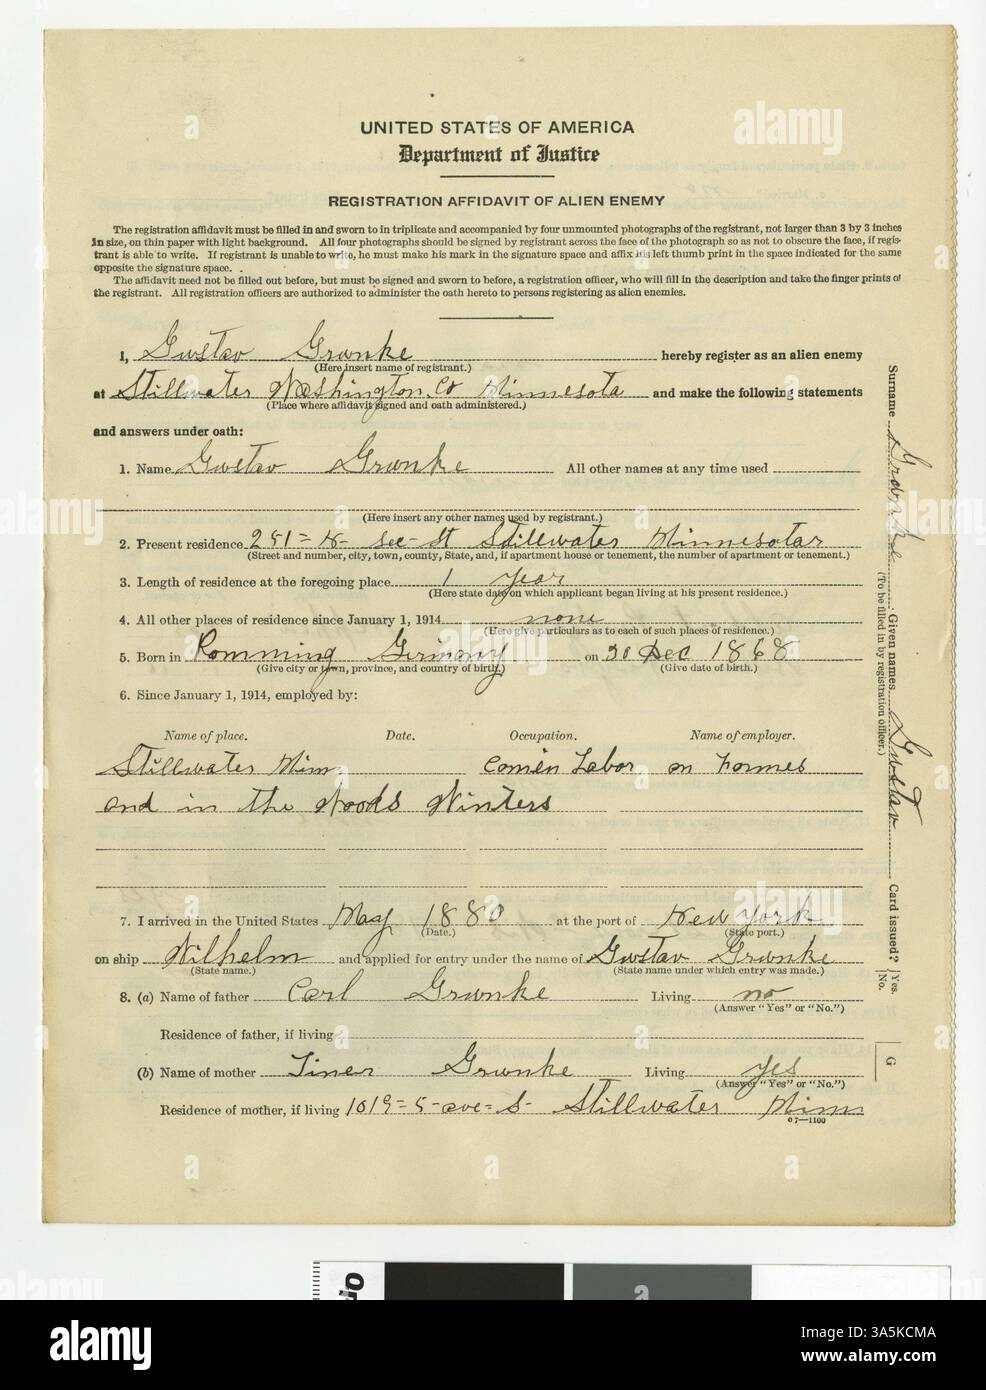 UNITED STATES OF AMERICA
Department of Justice
REGISTRATION AFFIDAVIT OF ALIEN ENEMY
The registration affidavit must be filled in and sworn to in triplicate and accompanied by four unmounted photographs of the registrant, not larger than 3 by 3 inches
in size, on thin paper with light background. All four photographs should be signed by registrant across the face of the photograph so as not to obscure the face, if regis-
trant is able to write. If registrant is unable to write, he must make his mark in the signature space and affix his left thumb print in the space indicated for the same
opposite the signature space.
The affidavit need not be filled out before, but must be signed and sworn to before, a registration officer, who will fill in the description and take the finger prints of
the registrant. All registration officers are authorized to administer the oath hereto to persons registering as alien enemies.
I, Gustav Grunke hereby register as an alien enemy
(Here insert name of registrant.)
at Stillwater Washington Co Minnesota and make the following statements
(Place where affidavit signed and oath administered.)
and answers under oath:
1. Name Gustav Grunke All other names at any time used
(Here insert any other names used by registrant.)
2. Present residence 251= N- sec- St Stillwater Minnesotar
(Street and number, city, town, county, State, and, if apartment house or tenement, the number of apartment or tenement.)
3. Length of residence at the foregoing place 1 year
(Here state date on which applicant began living at his present residence.)
4. All other places of residence since January 1, 1914 none
(Here give particulars as to each of such places of residence.)
5. Born in Romming Girmony on 20 Dec 1868
(Give city or town, province, and country of birth.) (Give date of birth.)
6. Since January 1, 1914, employed by:
Name of place. Date. Occupation. Name of employer.
Stillwater Minn Comen Labor on Formes
and in the Woods Winters
7. I arrived in the United States May 1880 at the port of New York
(Date.) (State port.)
on ship Wilhelm and applied for entry under the name of Gustav Grunke
(State name.) (State name under which entry was made.)
8. (a) Name of father Carl Grunke Living no
(Answer "Yes" or "No.")
Residence of father, if living
(b) Name of mother Tiner Grunke Living yes
(Answer "Yes" or "No.")
Residence of mother, if living 1019= 5- ave= S- Stillwater Minn
c7—1100
Surname Grunke Given names Gustav Card issued? Yes. No.
(To be filled in by registration officer.)
G
alamy
a
alamy
3A5KCMA
www.alamy.com